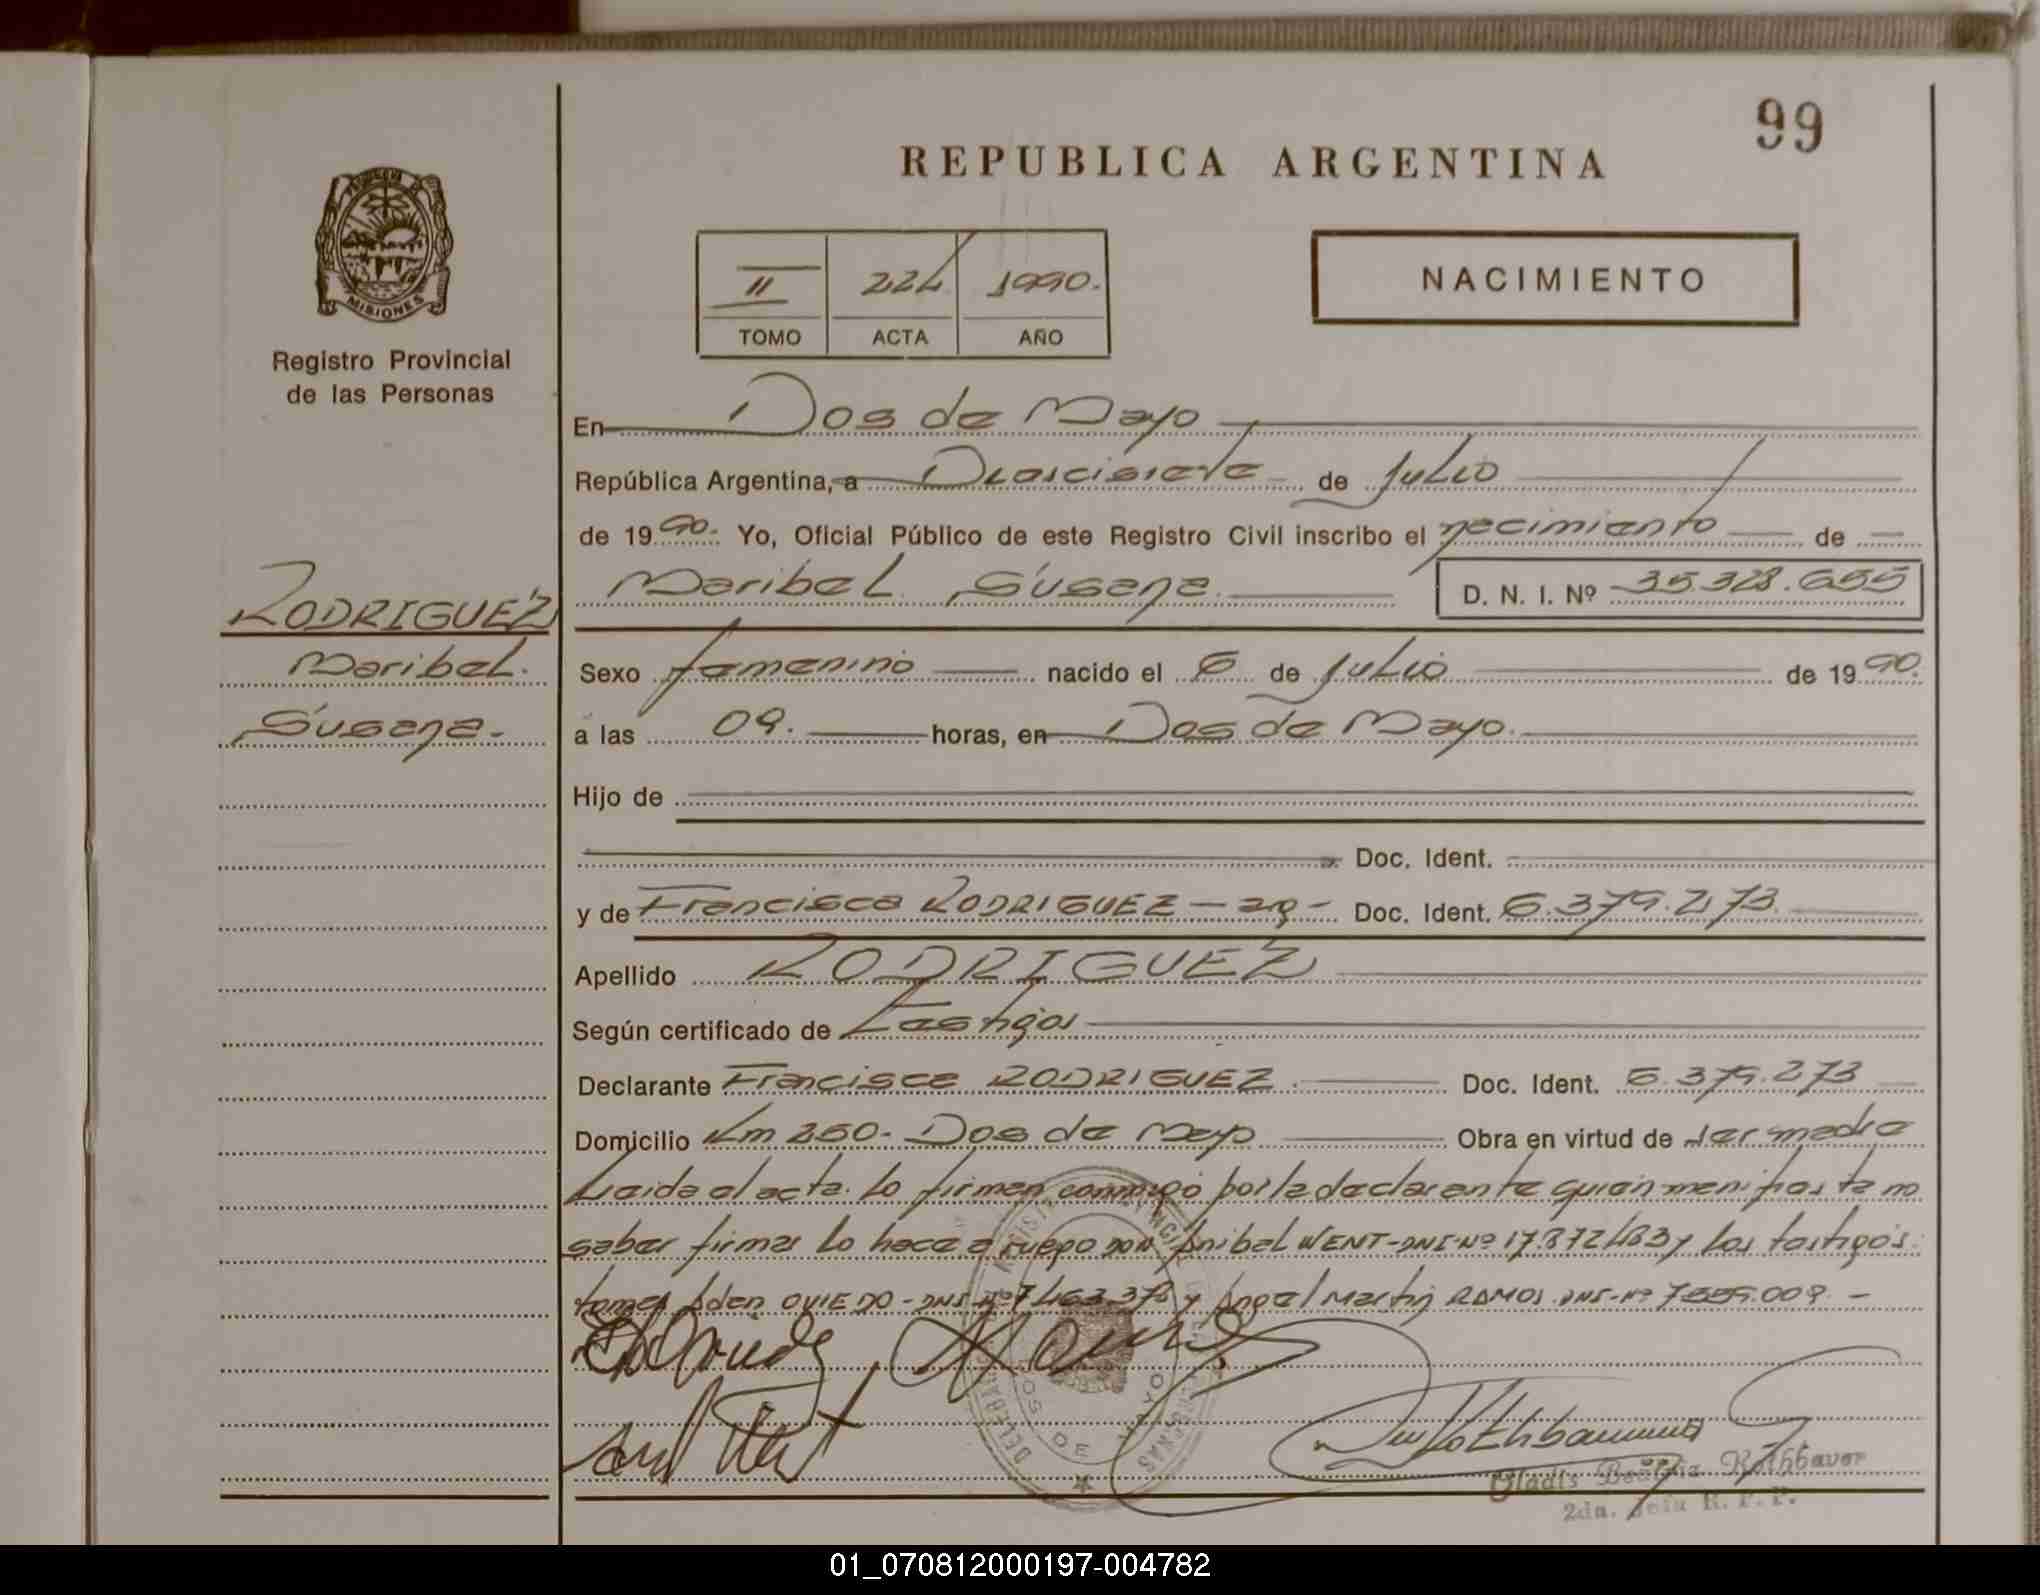 99
REPUBLICA ARGENTINA
PROVINCIA DE
MISIONES
Registro Provincial
de las Personas
II 224 1990.
TOMO ACTA AÑO
NACIMIENTO
En Dos de Mayo
República Argentina, a Diecisiete de Julio
de 1990. Yo, Oficial Público de este Registro Civil inscribo el nacimiento de
Maribel Susana. D. N. I. Nº 35.328.655
RODRIGUEZ
Maribel.
Susana.-
Sexo femenino nacido el 6 de Julio de 1990.
a las 09. horas, en Dos de Mayo.
Hijo de
Doc. Ident.
y de Francisca RODRIGUEZ - arg- Doc. Ident. 6.379.273
Apellido RODRIGUEZ
Según certificado de Testigos
Declarante Francisca RODRIGUEZ. Doc. Ident. 6.379.273
Domicilio Km 250.- Dos de Mayo Obra en virtud de ser madre
Leida el acta. Lo firman conmigo por la declarante quien manifiesta no
saber firmar lo hace a ruego don Anibal WENT-DNI-Nº 17.872.483 y los testigos:
OVIEDO - DNI Nº 7.463.378 y Angel Martin RAMOS DNI-Nº 7.559.009. -
DOS DE MAYO
Gladis Beatriz Rothbavor
2da. Jefa R. P. P.
01_070812000197-004782